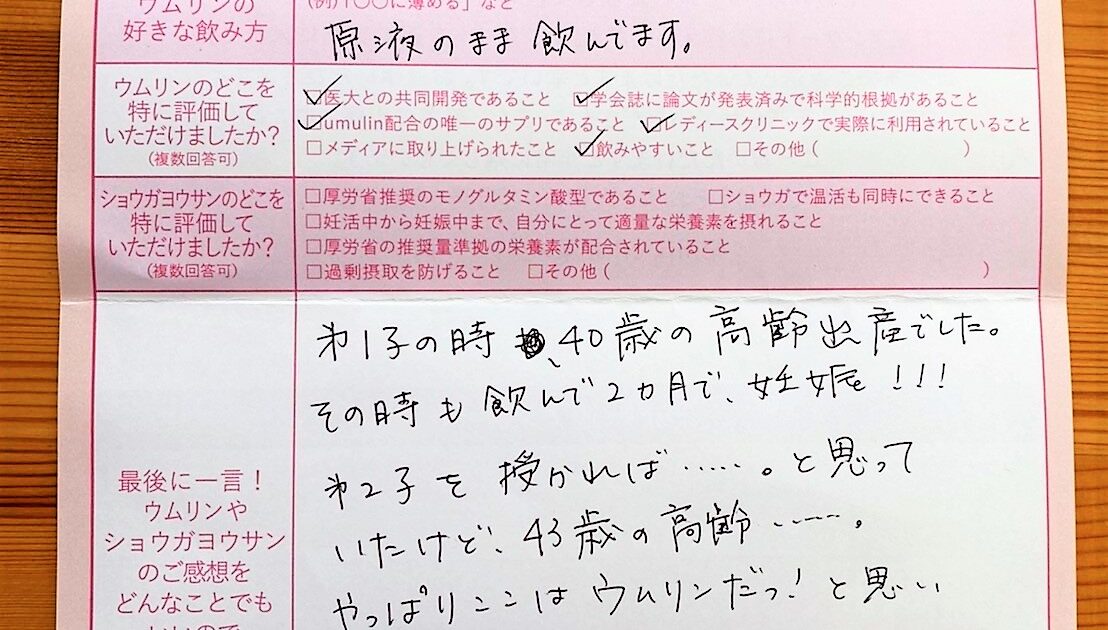 ウムリンの
好きな飲み方
(例)「〇〇に薄める」など
原液のまま飲んでます。
ウムリンのどこを
特に評価して
いただけましたか?
(複数回答可)
☑医大との共同開発であること ☑学会誌に論文が発表済みで科学的根拠があること
☑umulin配合の唯一のサプリであること ☑レディースクリニックで実際に利用されていること
□メディアに取り上げられたこと ☑飲みやすいこと □その他( )
ショウガヨウサンのどこを
特に評価して
いただけましたか?
(複数回答可)
□厚労省推奨のモノグルタミン酸型であること □ショウガで温活も同時にできること
□妊活中から妊娠中まで、自分にとって適量な栄養素を摂れること
□厚労省の推奨量準拠の栄養素が配合されていること
□過剰摂取を防げること □その他( )
最後に一言!
ウムリンや
ショウガヨウサン
のご感想を
どんなことでも
いいので
第1子の時、40歳の高齢出産でした。
その時も飲んで2カ月で、妊娠!!!
第2子を授かれば……。と思って
いたけど、43歳の高齢……。
やっぱりここはウムリンだっ!と思い